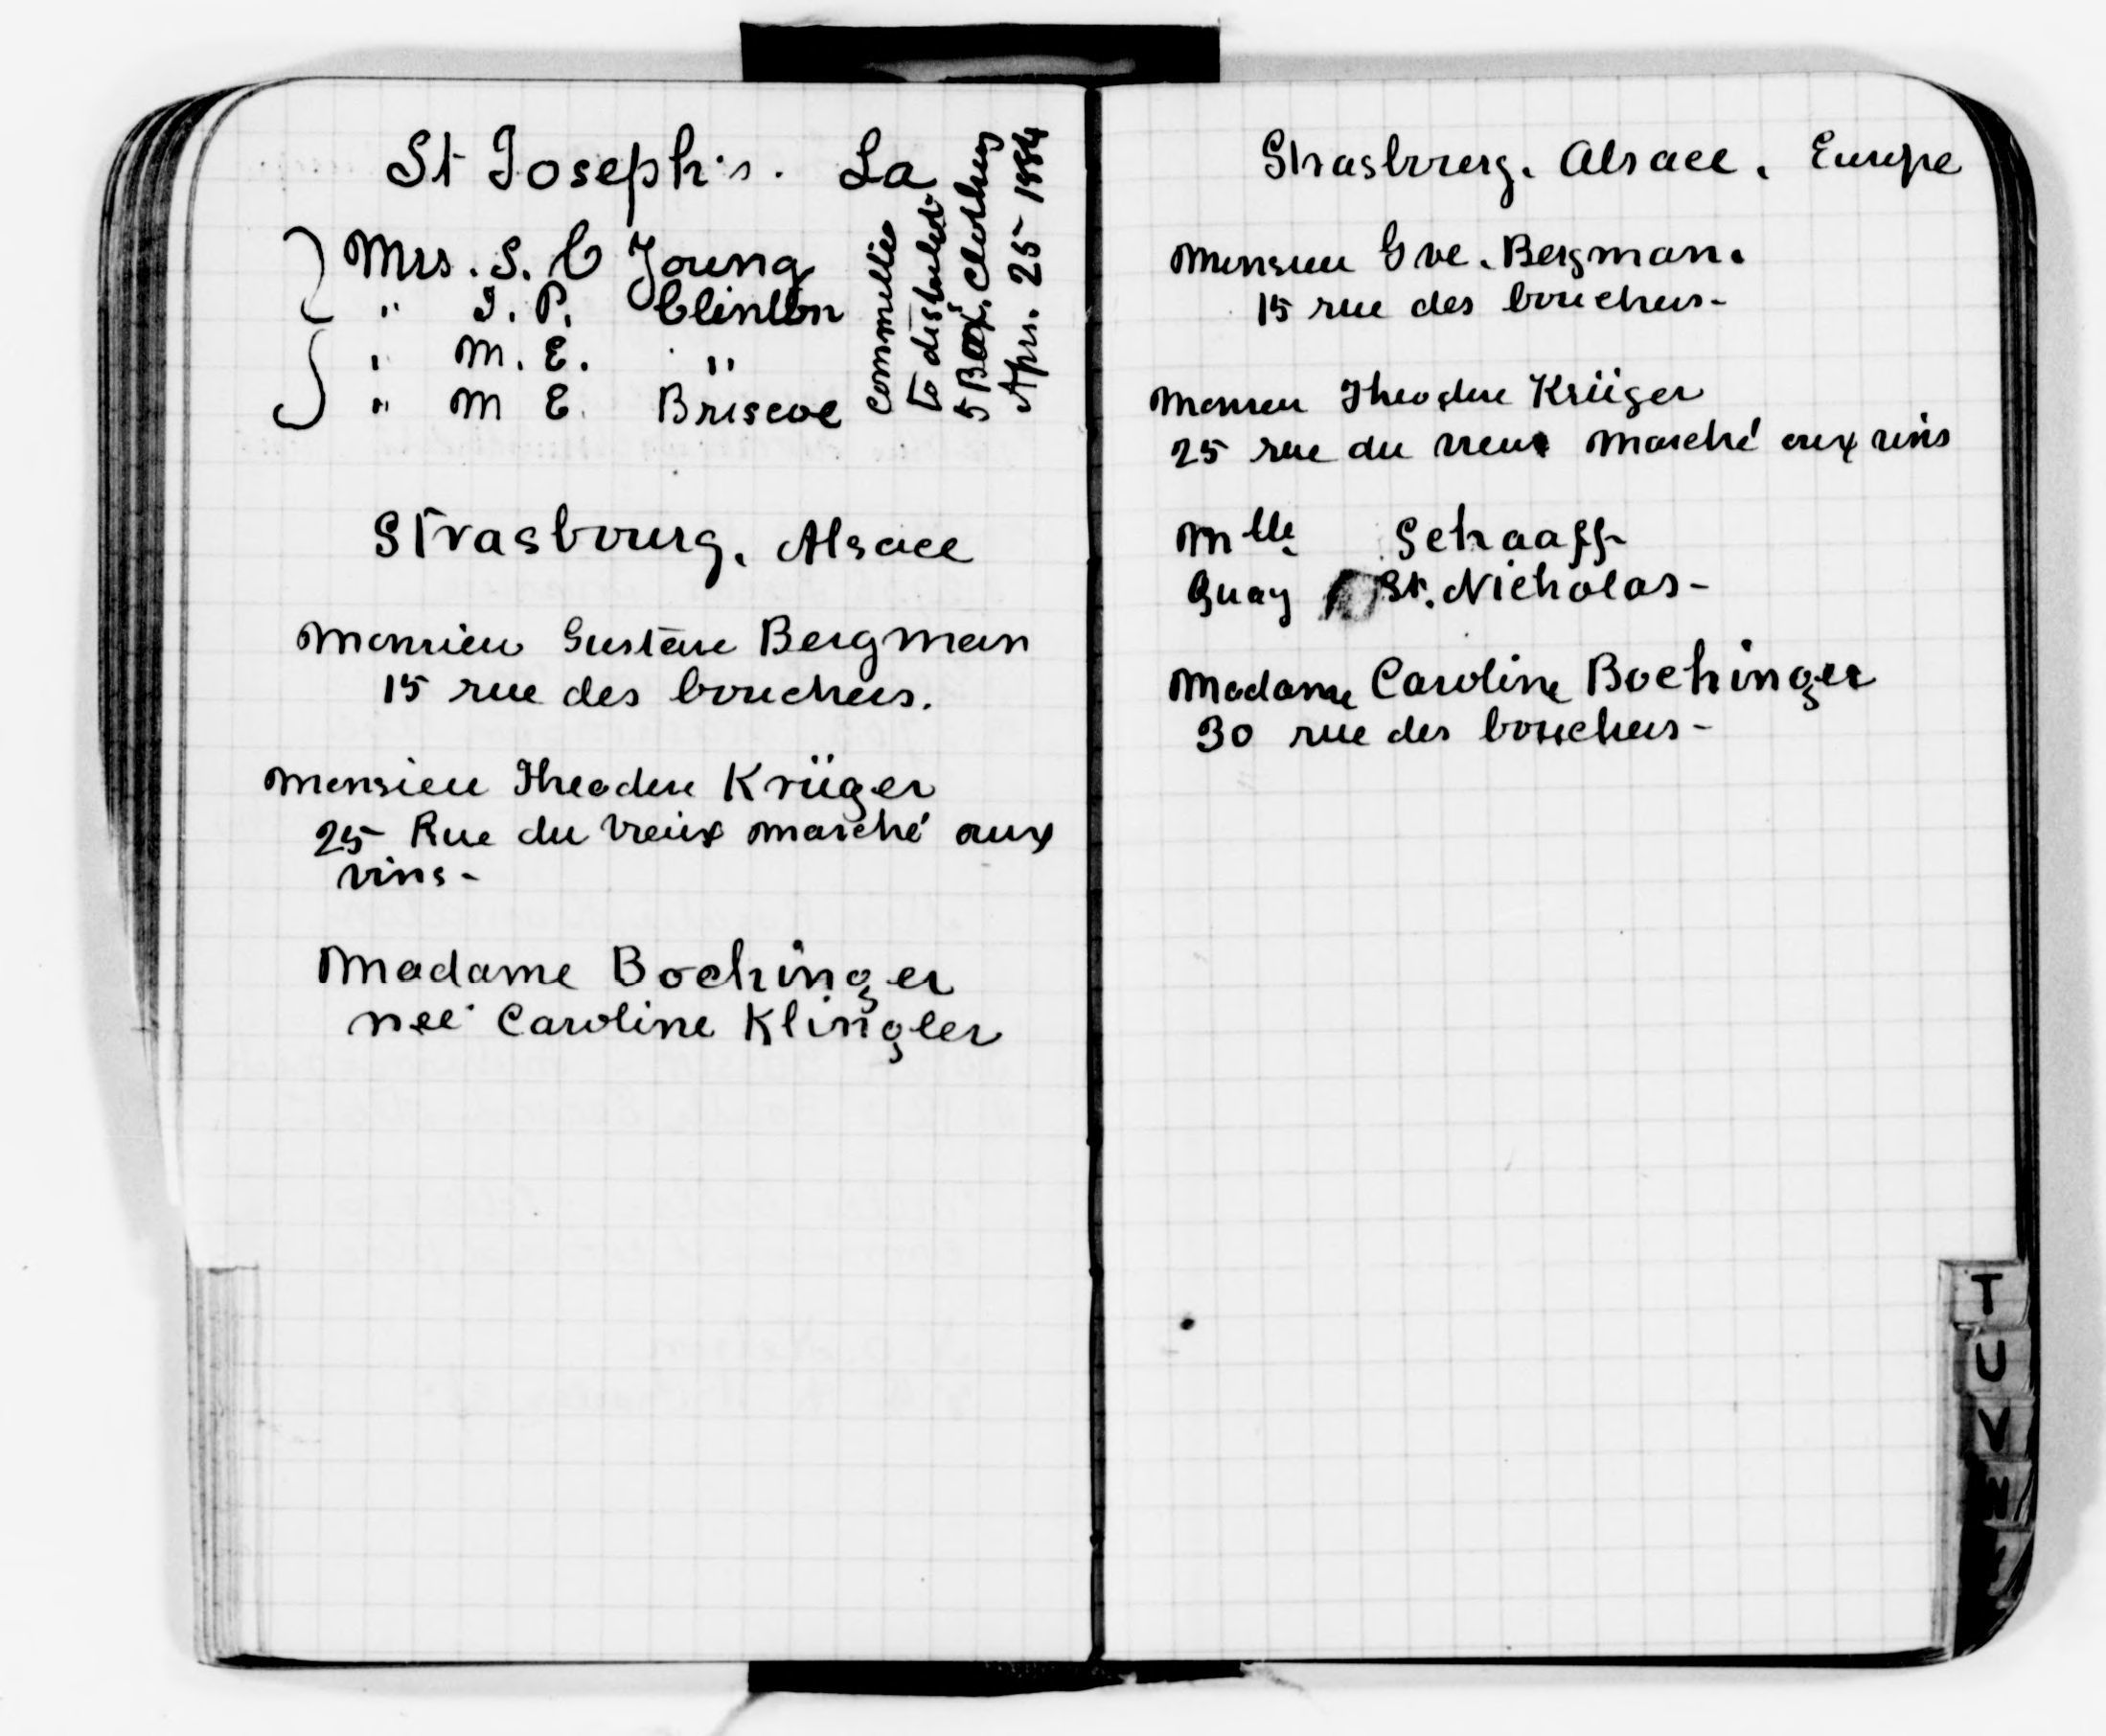 St Joseph's. La
Mrs. S. C Young
" J. P. Clinton
" M. E. "
" M E. Briscoe
Committee
to distribute
5 Box. Clothing
Apr. 25 1884
Strasbourg. Alsace
Monsieur Gustave Bergman
15 rue des bouchers.
Monsieur Theodore Krüger
25 Rue du vieux marché aux
vins-
Madame Boehinger
neé Caroline Klingler
Strasbourg. Alsace. Europe
Monsieur Gve. Bergman.
15 rue des bouchers-
Monsieur Theodore Krüger
25 rue du vieux marché aux vins
Mlle Schaaff
Quay St. Nicholas-
Madame Caroline Boehinger
30 rue des bouchers-
T
U
V
W